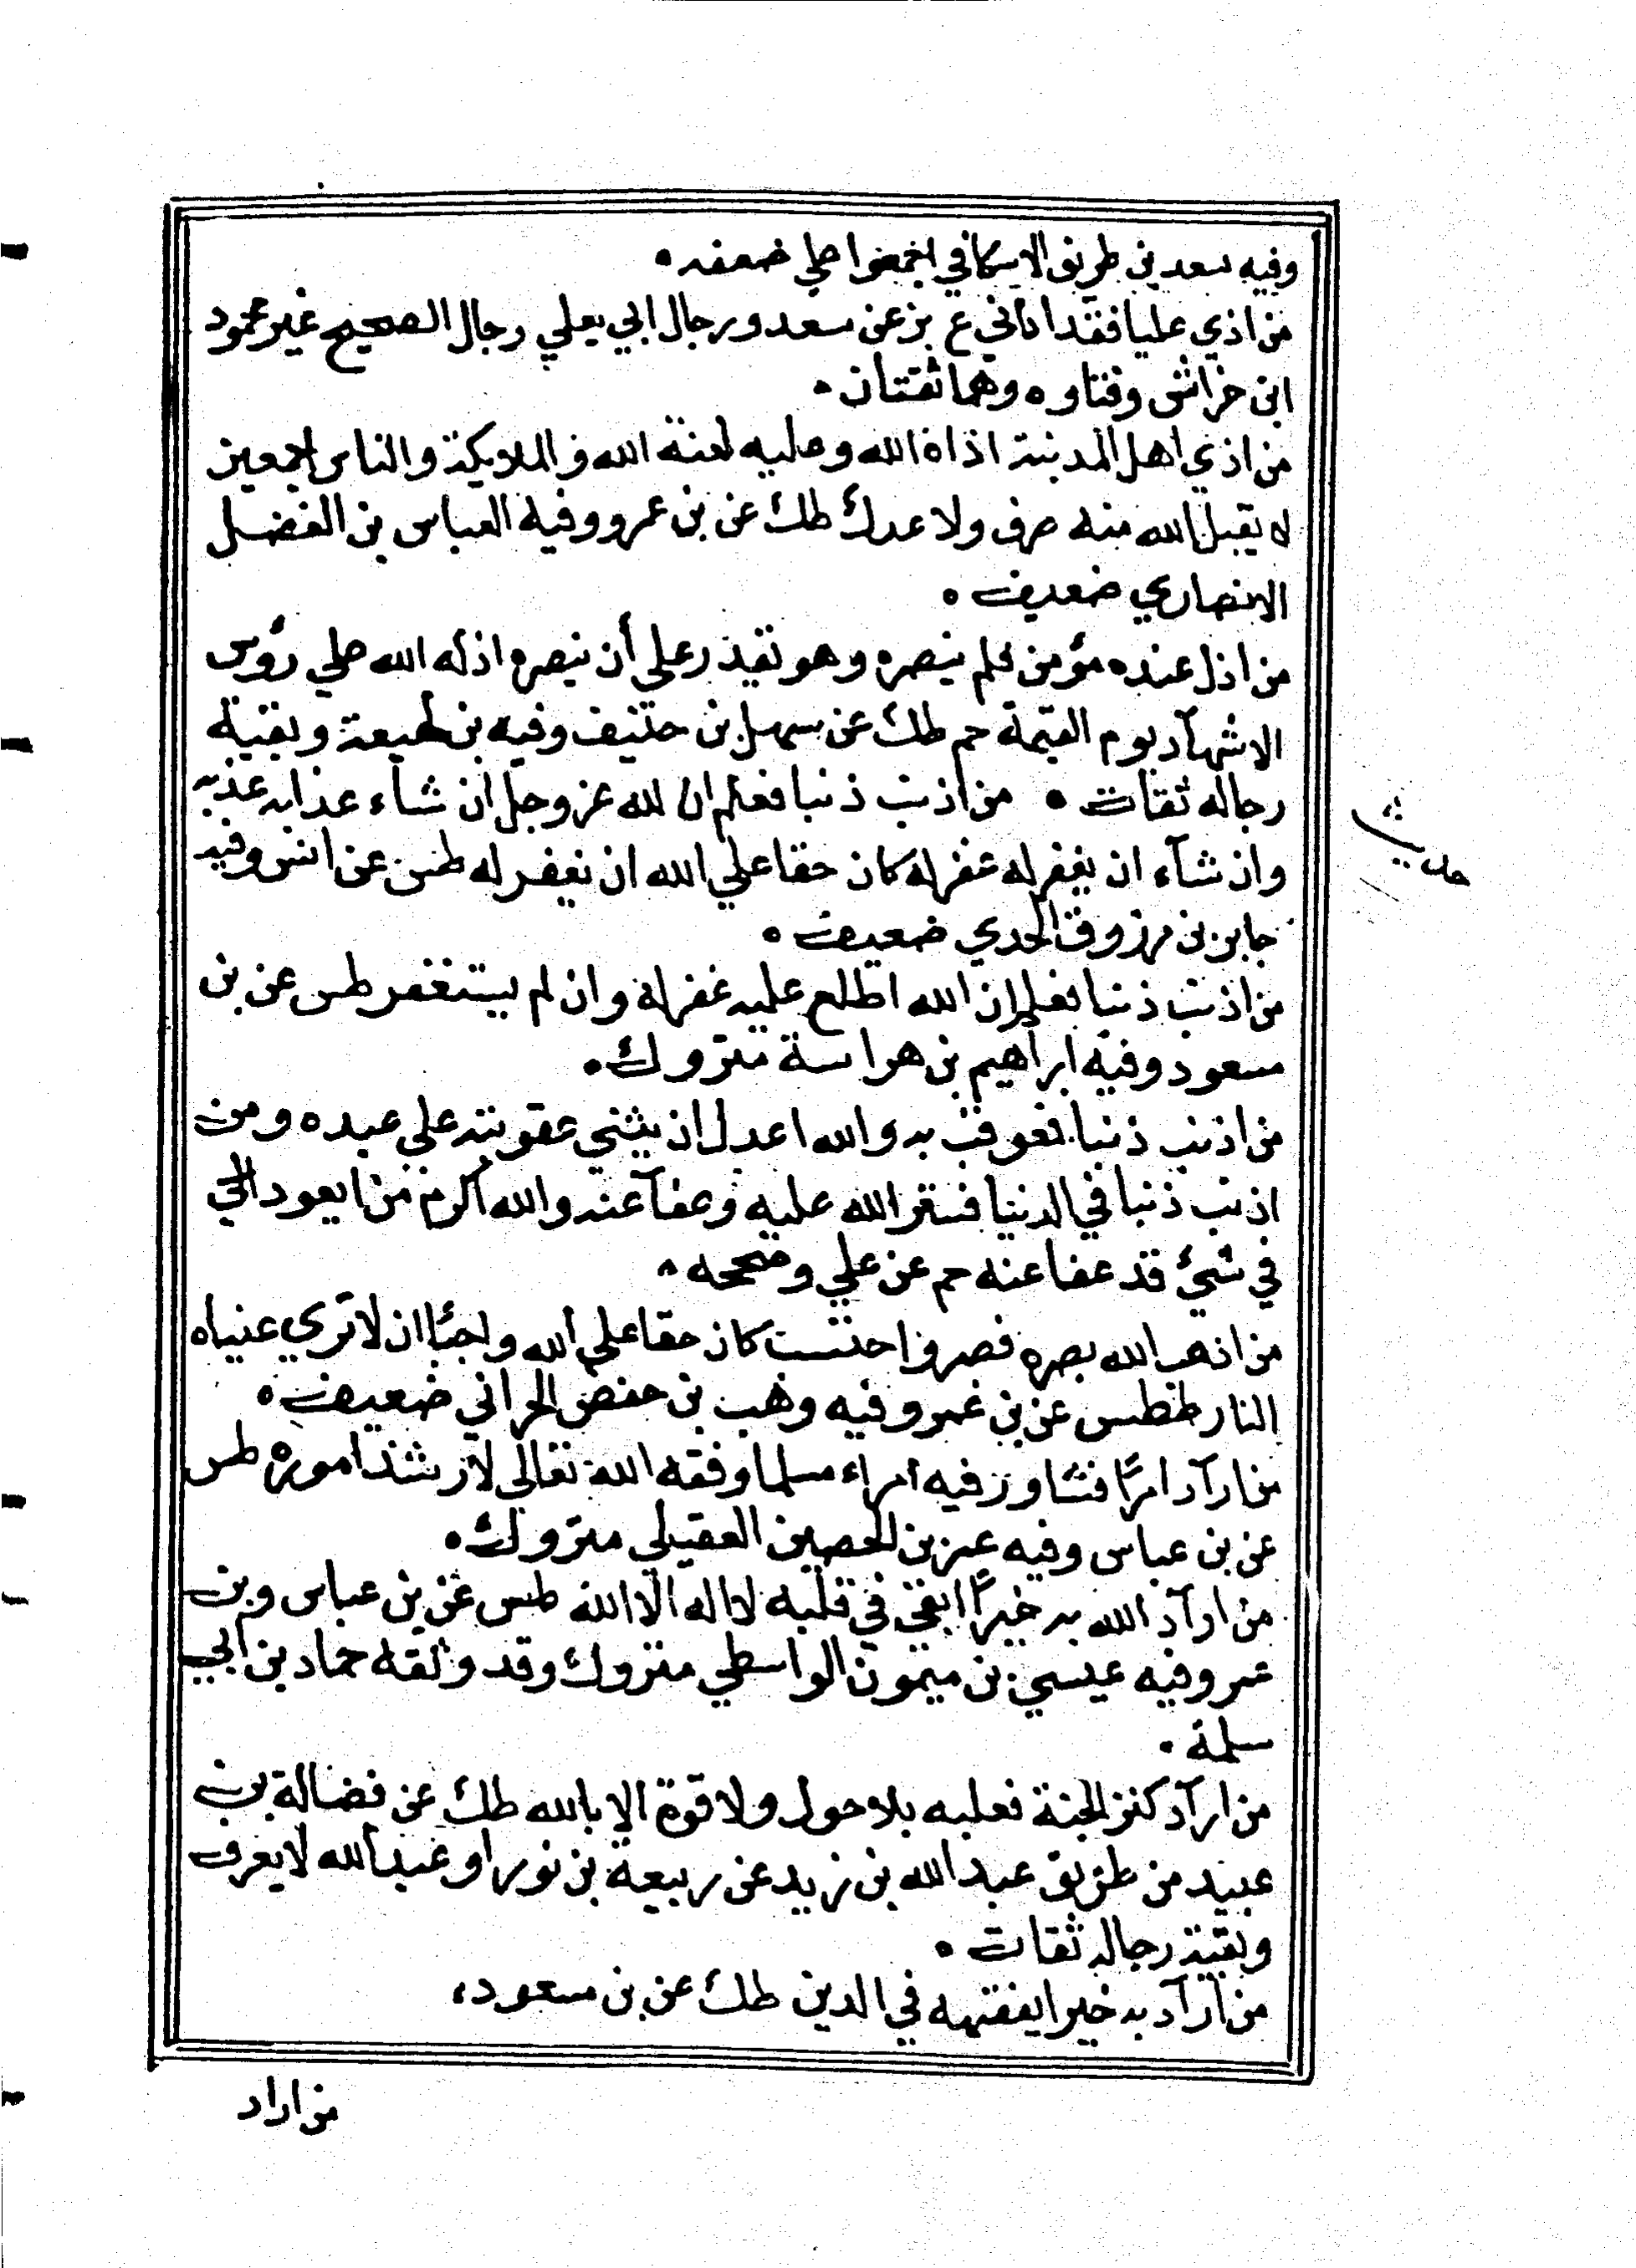 وفيه سعد بن طريق الاسكافي اجمعوا علي ضعفه
من اذي عليا فقد اذاني ع بز عن سعد ورجال ابي يعلي رجال الصحيح غير محمود
ابن خراش وقتاوه وهما ثقتان
من اذي اهل المدينة اذاه الله وعليه لعنة الله والملايكة والناس اجمعين
لا يقبل الله منه صرف ولا عدل طك عن بن عمرو وفيه العباس بن الفضل
الانصاري ضعيف
من اذل عنده مؤمن فلم ينصره وهو يقدر علي أن ينصره اذله الله علي رؤس
الاشهاد يوم القيمة حم طك عن سهل بن حنيف وفيه بن لهيعة وبقية
رجاله ثقات من اذنب ذنبا فعلم ان لله عز وجل ان شاء عذابه عذبه
وان شآء ان يغفر له غفر له كان حقا علي الله ان يغفر له طس عن انس وفيه
جابر بن مرزوق الجدي ضعيف
من اذنب ذنبا فعلم ان الله اطلع عليه غفر له وان لم يستغفر طس عن بن
مسعود وفيه ابراهيم بن هراسة متروك
من اذنب ذنبا فعوقب به والله اعدل ان يثني عقوبته علي عبده ومن
اذنب ذنبا في الدنيا فستر الله عليه وعفآ عنه والله اكرم من ايعود الي
في شيئ قد عفا عنه حم عن علي وصححه
من اذهب الله بصره فصبر واحتسب كان حقا علي الله واجبا ان لا تري عنياه
النار طط طس عن بن عمر وفيه وهب بن حفص الحراني ضعيف
من ارآد امرًا فشاور فيه امراء مسلما وفقه الله تعالي لارشد اموره طس
عن بن عباس وفيه عمر بن الحصين العقيلي متروك
من ارآد الله به خيرًا ابقي في قلبه لا اله الا الله طس عن بن عباس وبن
عمر وفيه عيسي بن ميمون الواسطي متروك وقد وثقه حماد بن ابي
سلمة
من ارآد كنز الجنة فعليه بلا حول ولا قوة الا بالله طك عن فضالة بن
عبيد من طريق عبد الله بن زيد عن ربيعة بن نورا وعبد الله لا يعرف
وبقية رجاله ثقات
من ارآد به خيرا يفقهه في الدين طك عن بن مسعود
حديث
من اراد